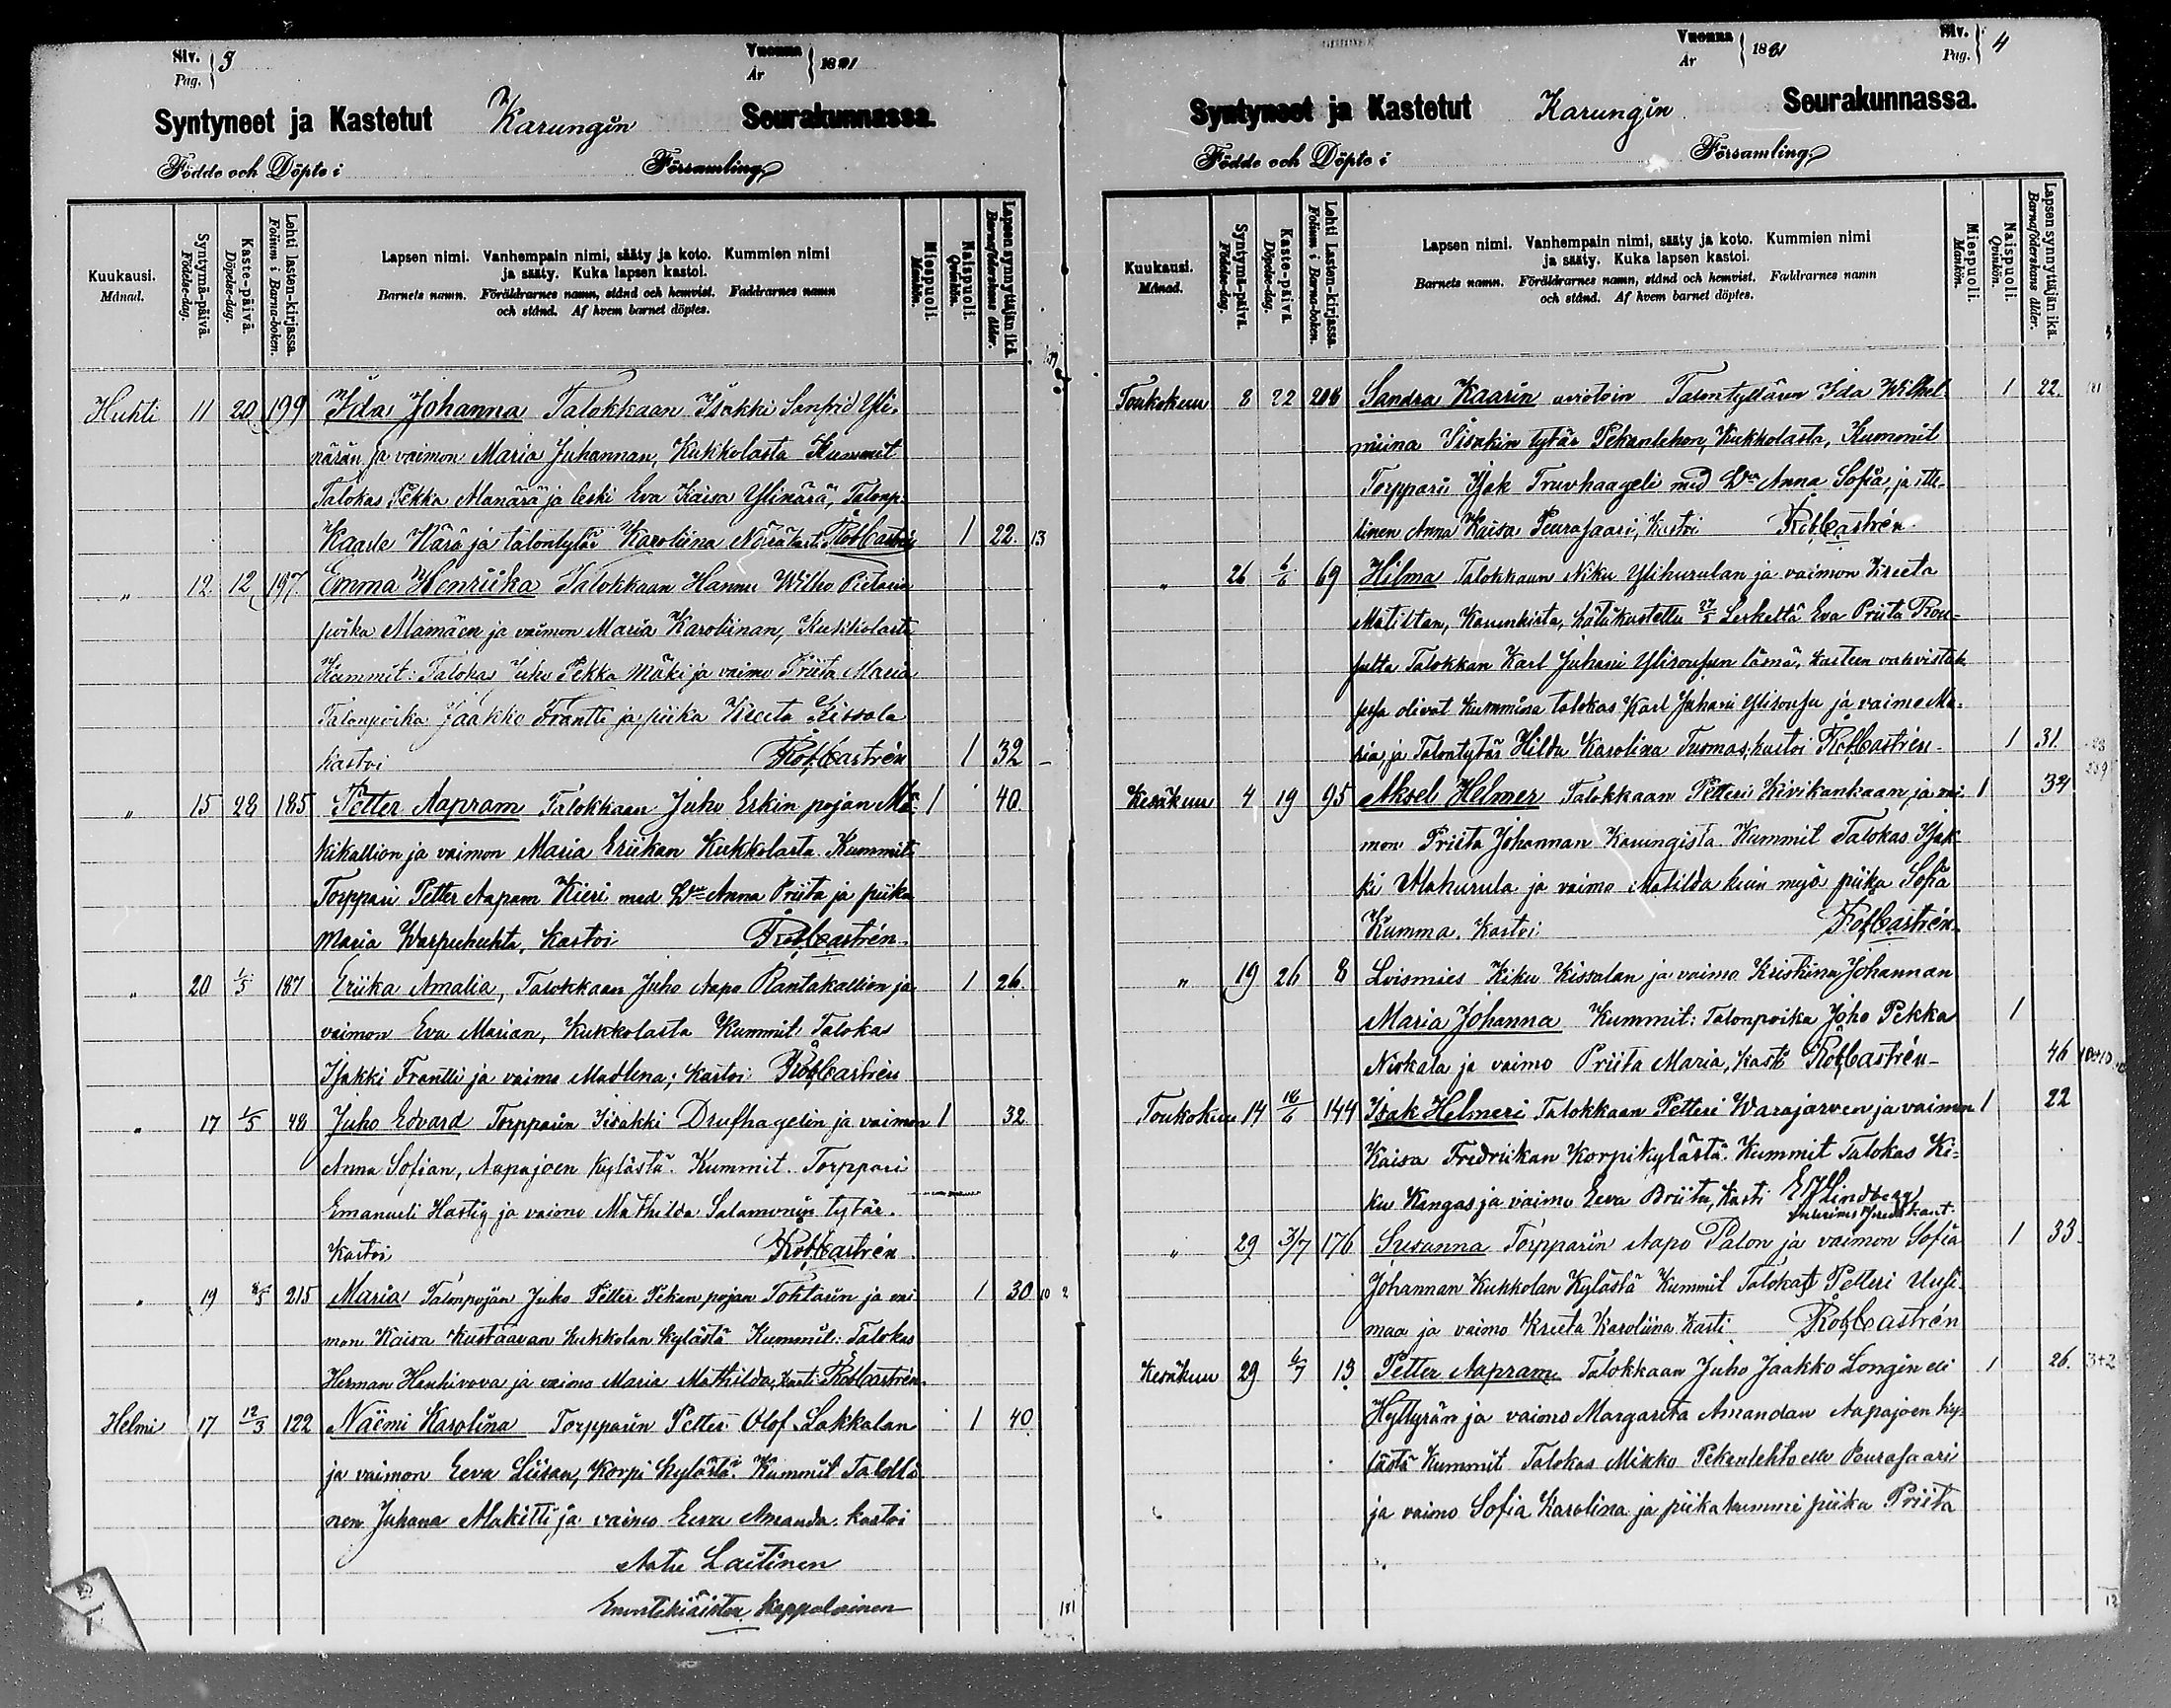 Siv. 3
Pag.
Vuonna 1881
År
Syntyneet ja Kastetut Karungin Seurakunnassa.
Födde och Döpte i Församling
Kuukausi.
Månad.
Syntymä-päivä.
Födelse-dag.
Kaste-päivä.
Döpelse-dag.
Lehti lasten-kirjassa.
Folium i Barna-boken.
Lapsen nimi. Vanhempain nimi, sääty ja koto. Kummien nimi
ja sääty. Kuka lapsen kastoi.
Barnets namn. Föräldrarnes namn, stånd och hemvist. Faddrarnes namn
och stånd. Af hvem barnet döptes.
Miespuoli.
Mankön.
Naispuoli.
Qvinkön.
Lapsen synnyttäjän ikä.
Barnaföderskans ålder.
Huhti 11 20 199 Ida Johanna Talokkaan Isakki Sanfrid Yli-
närän ja vaimon Maria Juhannan, Kukkolasta Kummit
Talokas Pekka Alanärä ja leski Eva Kaisa Ylinärä, Talonp.
Kaarle Närä ja talontytär Karoliina Närä Kasti RobCastrén 1 22 13
" 12 12 197 Emma Henriika Talokkaan Hannu Wilho Pietarin
poika Alamäen ja vaimon Maria Karoliinan, Kukkolasta
Kummit: Talokas Juho Pekka Mäki ja vaimo Priita Maria
Talonpoika Jaakko Frantti ja piika Kreeta Kissala
Kastoi RobCastrén 1 32
" 15 28 185 Petter Aapram Talokkaan Juho Erkin pojan Mä- 1 40
kikallion ja vaimon Maria Eriikan Kukkolasta Kummit
Torppari Petter Aapam Kieri med Anna Priita ja piika
Maria Warpuhuhta, Kastoi RobCastrén.
" 20 1/5 187 Eriika Amalia, Talokkaan Juho Aapo Rantakallion ja 1 26.
vaimon Eva Marian, Kukkolasta Kummit Talokas
Isakki Frantti ja vaimo Madlena; Kastoi RobCastrén
" 17 1/5 48 Juho Edvard Torpparin Iisakki Drufhagelin ja vaimon 1 32
Anna Sofian, Aapajoen Kylästä. Kummit. Torppari
Emanueli Hastig ja vaimo Mathilda Salamonin tytär.
Kastoi RobCastrén
" 19 8/5 215 Maria Talonpojan Juho Petter Pekan pojan Tohtarin ja vai 1 30 10 2
mon Kaisa Kustaavan Kukkolan Kylästä Kummit: Talokas
Herman Hanhivova ja vaimo Maria Mathilda, Kasti RobCastrén.
Helmi 17 12/3 122 Naëmi Karolina Torpparin Petteri Olof Lakkalan 1 40
ja vaimon Eeva Liisan, Korpi kylästä. Kummit Talolli
nen Juhana Mäkitti ja vaimo Eeva Amanda. kastoi
Aatu Laitinen
Enontekiäisten Kappalainen
181
Siv. 4
Pag.
Vuonna 1881
År
Syntyneet ja Kastetut Karungin Seurakunnassa.
Födde och Döpte i Församling
Kuukausi.
Månad.
Syntymä-päivä.
Födelse-dag.
Kaste-päivä.
Döpelse-dag.
Lehti Lasten-kirjassa.
Folium i Barna-boken.
Lapsen nimi. Vanhempain nimi, sääty ja koto. Kummien nimi
ja sääty. Kuka lapsen kastoi.
Barnets namn. Föräldrarnes namn, stånd och hemvist. Faddrarnes namn
och stånd. Af hvem barnet döptes.
Miespuoli.
Mankön.
Naispuoli.
Qvinkön.
Lapsen synnyttäjän ikä.
Barnaföderskans ålder.
Toukokuu 8 22 208 Sandra Kaarin aviotoin Talontyttären Ida Wilhel- 1 22.
miina Iisakin tytär Pekanlehon, Kukkolasta, Kummit
Torppari Isak Truvhaageli med Anna Sofia, ja itte-
linen Anna Kaisa Peurasaari, Kastoi RobCastrén
" 26 6/6 69 Hilma Talokkaan Niku Ylihurulan ja vaimon Kreeta
Matiltan, Karunkista, hätäkastettu 27/5 Leskeltä Eva Priita Rou-
sulta Talokkan Karl Juhani Ylirousun läsnä, Kasteen vahvistuk-
sessa olivat Kummina talokas Karl Juhani Ylirousu ja vaimo Ma-
ria ja Talontytär Hilda Karolina Tuomas, kastoi RobCastrén 1 31.
Kesäkuu 4 19 95 Aksel Helmer Talokkaan Petteri Kivikankaan ja vai- 1 34
mon Priita Johannan Karungista. Kummit Talokas Isak-
ki Alahurula ja vaimo Matilda kuin myös piika Sofia
Kumma. Kastoi RobCastrén.
" 19 26 8 Loismies Kiku Kissalan ja vaimo Kristiina Johannan
Maria Johanna Kummit: Talonpoika Joho Pekka 1
Niskala ja vaimo Priita Maria, Kasti RobCastrén 46
Toukokuu 14 18/6 144 Isak Helmeri Talokkaan Petteri Warajärven ja vaimon 1 22
Kaisa Fredriikan Korpikylästä. Kummit Talokas Ki-
ku Kangas ja vaimo Eeva Briita, Kasti Lindberg
" 29 3/7 176 Susanna Torpparin Aapo Palon ja vaimon Sofia 1 33
Johannan Kukkolan Kylästä Kummit Talokas Petteri Uusi-
maa ja vaimo Kreeta Karoliina Kasti RobCastrén
Kesäkuu 29 6/7 13 Petter Aapram Talokkaan Juho Jaakko Longin eli 1 26. 3+2
Hyttyrän ja vaimo Margareta Amandan Aapajoen ky-
lästä Kummit Talokas Mikko Pekanlehto elle Peurasaari
ja vaimo Sofia Karolina ja piika kummi piika Priita